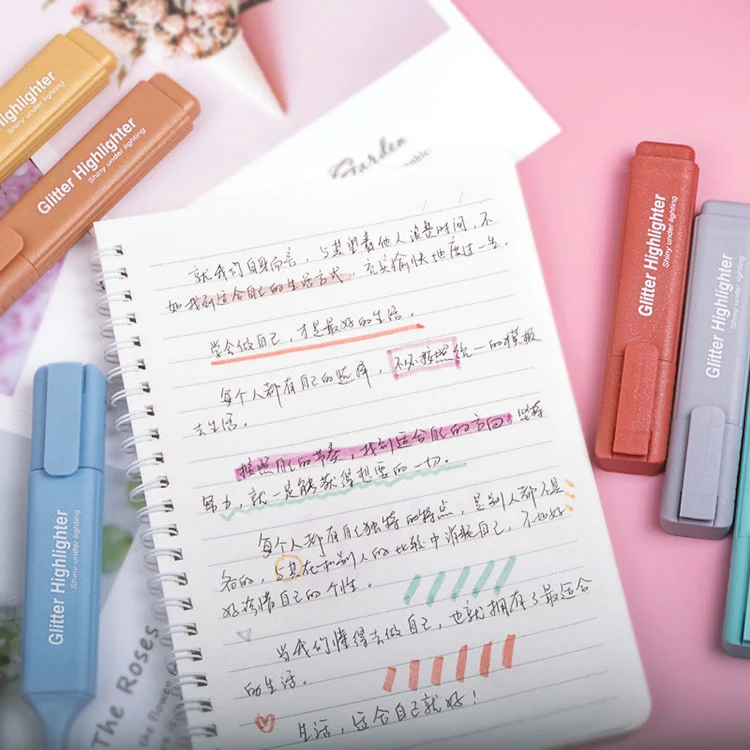 Highlighter
Shiny under lighting
Glitter Highlighter
Shiny under lighting
Garden
就我们自身而言，与其望着他人浪费时间，不
如找到适合自己的生活方式，充实愉快地度过一生。
学会做自己，才是最好的生活。
每个人都有自己的，不必按照统一的模板
去生活。
按照自己的节奏，找到适合自己的方向，坚持
努力，就一定能赢得想要的一切。
每个人都有自己独特的特点，是别人都不具
备的，与其在和别人的比较中消耗自己，不如好
好珍惜自己的个性。
当我们懂得去做自己，也就拥有了最适合
的生活。
生活，适合自己就好！
Glitter Highlighter
Shiny under lighting
Glitter Highlighter
Shiny under lighting
Glitter Highlighter
Shiny under lighting
The Roses
the flower